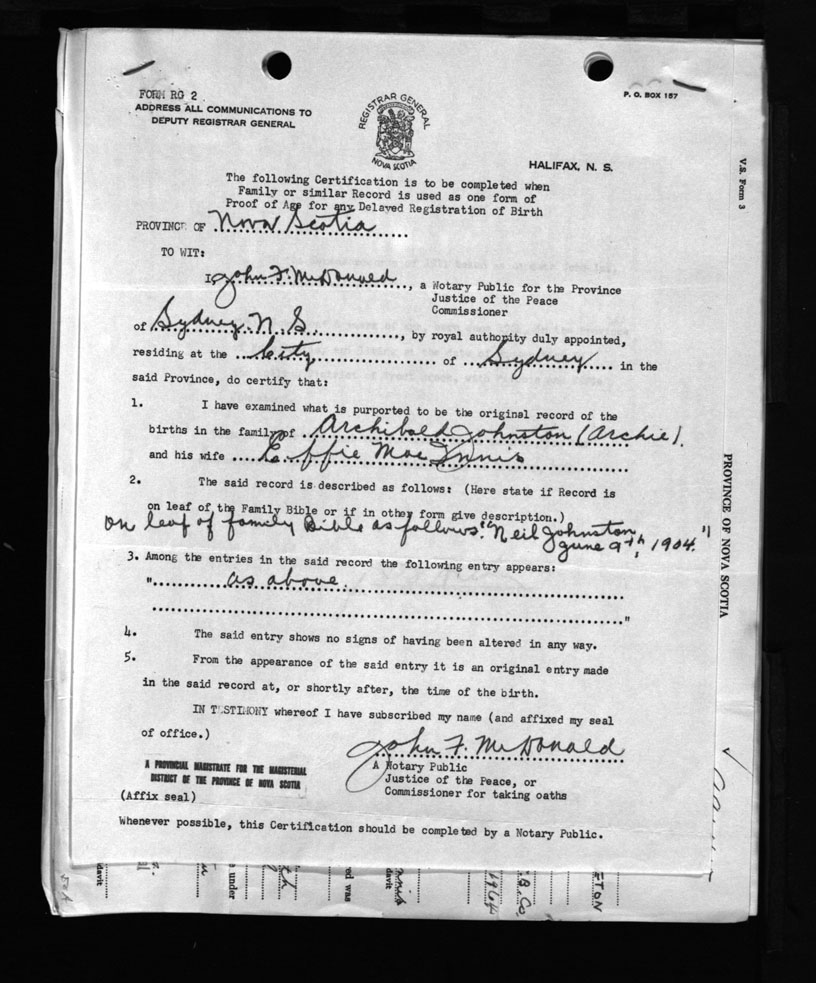 FORM RG 2
ADDRESS ALL COMMUNICATIONS TO
DEPUTY REGISTRAR GENERAL
REGISTRAR GENERAL
NOVA SCOTIA
P. O. BOX 157
HALIFAX, N. S.
The following Certification is to be completed when
Family or similar Record is used as one form of
Proof of Age for any Delayed Registration of Birth
PROVINCE OF Nova Scotia
TO WIT:
I, John F. McDonald, a Notary Public for the Province
Justice of the Peace
Commissioner
of Sydney N. S., by royal authority duly appointed,
residing at the City of Sydney in the
said Province, do certify that:
1. I have examined what is purported to be the original record of the
births in the family of Archibald Johnston (Archie).
and his wife Effie MacInnis
2. The said record is described as follows: (Here state if Record is
on leaf of the Family Bible or if in other form give description.)
on leaf of family Bible as follows: "Neil Johnston
June 9th, 1904."
3. Among the entries in the said record the following entry appears:
" as above
"
4. The said entry shows no signs of having been altered in any way.
5. From the appearance of the said entry it is an original entry made
in the said record at, or shortly after, the time of the birth.
IN TESTIMONY whereof I have subscribed my name (and affixed my seal
of office.)
John F. McDonald
A PROVINCIAL MAGISTRATE FOR THE MAGISTERIAL
DISTRICT OF THE PROVINCE OF NOVA SCOTIA
A Notary Public
Justice of the Peace, or
Commissioner for taking oaths
(Affix seal)
Whenever possible, this Certification should be completed by a Notary Public.
V.S. Form 3
PROVINCE OF NOVA SCOTIA
davit
e under
red was
davit
B.C.
1964
ETON